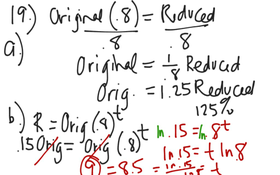 19) Original (.8) = Reduced
.8 .8
a)
Original = 1/8 Reduced
Orig. = 1.25 Reduced
125%
b) R = Orig (.8)^t
.15 Orig = Orig (.8)^t
ln .15 = ln .8^t
ln .15 = t ln .8
9 = 8.5 = t